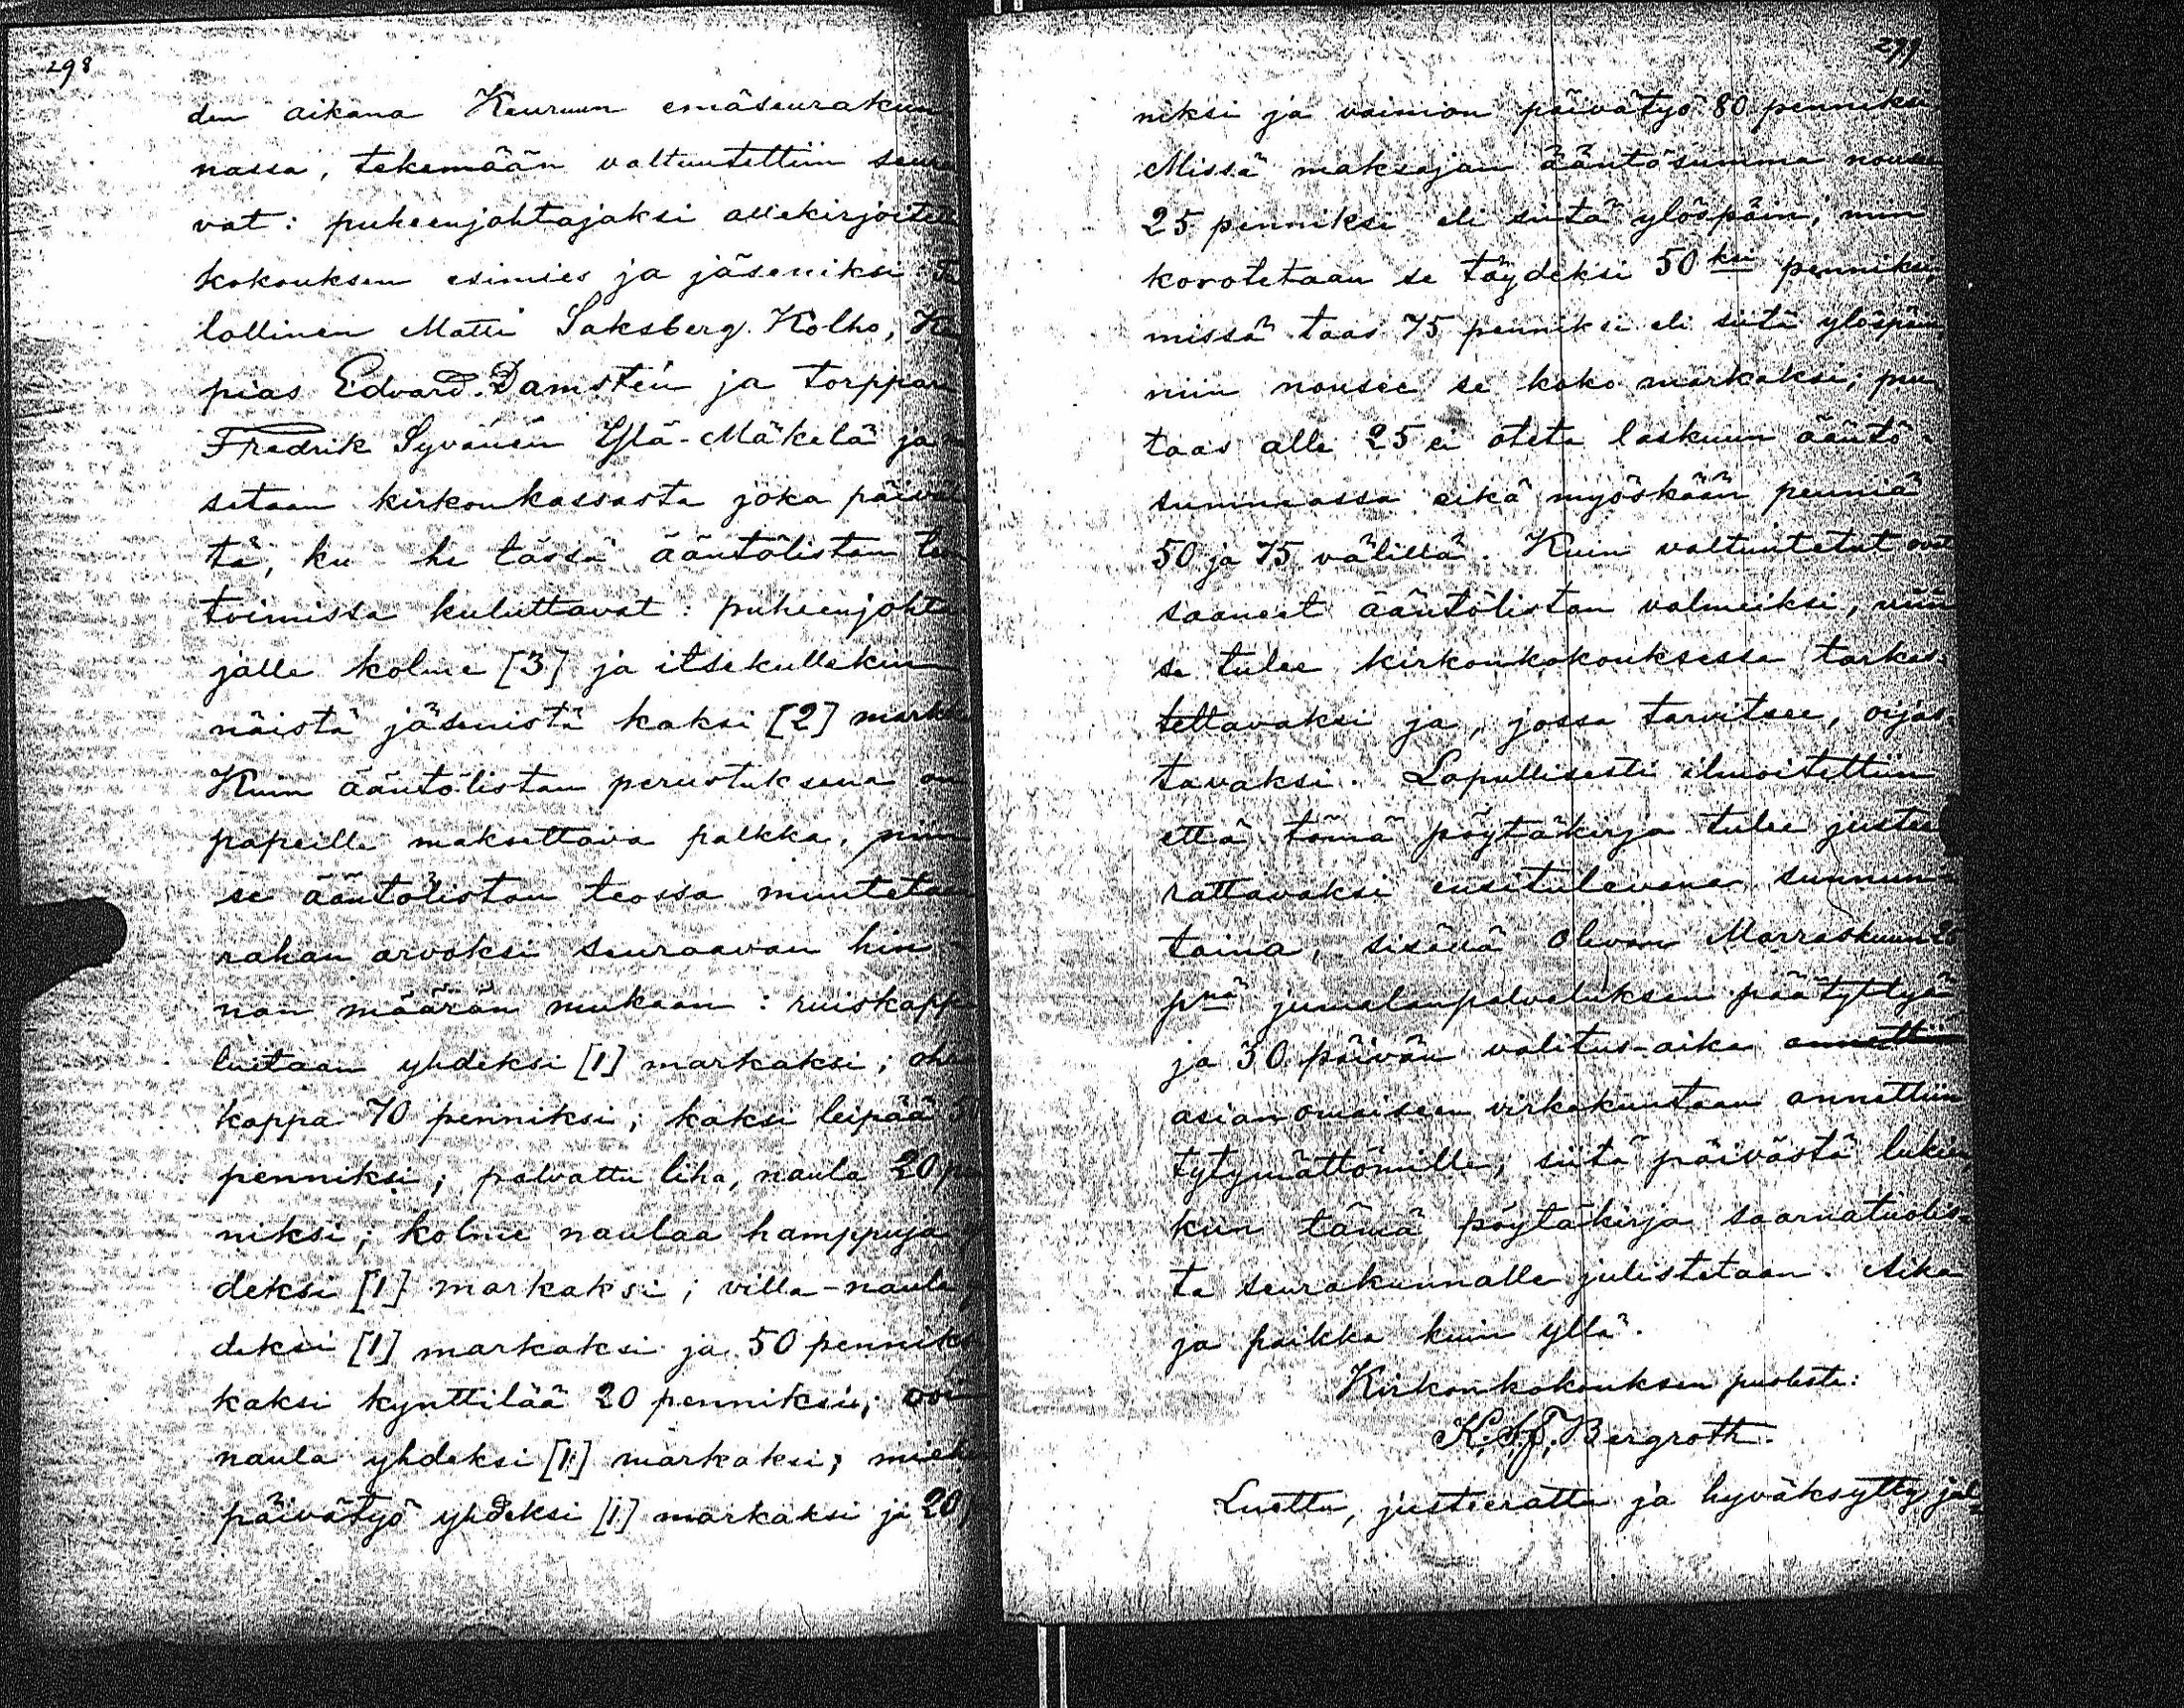 298
den aikana Keuruun emäseurakun
nassa, tekemään valtuutettiin seura
vat: puheenjohtajaksi allekirjoitett
kokouksen esimies ja jäseniksi Ta
lollinen Matti Saksberg Kolho, Ka
pias Edvard Damstén ja torppari
Fredrik Syvänen Ylä-Mäkelä ja
setaan kirkonkassasta joka päiväl
tä, ku he tässä ääntölistan
toimissa kuluttavat: puheenjohta
jalle kolme [3] ja itsekullekin
näistä jäsenistä kaksi [2] markka
Kuin ääntölistan perustuksena on
papeille maksettava palkka, niin
se ääntölistan teossa muutetaan
rahan arvoksi seuraavan hin
nan määrän mukaan: ruiskapp
luetaan yhdeksi [1] markaksi; ohr
kappa 70 penniksi; kaksi leipää
penniksi; palvattu liha, naula 20 p
niksi; kolme naulaa hamppuja
deksi [1] markaksi; villa-naula
deksi [1] markaksi ja 50 penniks
kaksi kynttilää 20 penniksi; voi
naula yhdeksi [1] markaksi; miehe
päivätyö yhdeksi [1] markaksi ja 20 p
299
niksi ja vaimon päivätyö 80 penniksi
Missä maksajan ääntösumma nousee
25 penniksi eli siitä ylöspäin, niin
korotetaan se täydeksi 50ksi penniksi,
missä taas 75 penniksi eli siitä ylöspäin
niin nousee se koko markaksi;
taas alle 25 ei oteta laskuun ääntö-
summassa eikä myöskään penniä
50 ja 75 välillä. Kuin valtuutetut ovat
saaneet ääntölistan valmiiksi, niin
se tulee kirkonkokouksessa tarkas-
tettavaksi ja, jossa tarvitsee, oijas-
tavaksi. Lopullisesti ilmoitettiin
että tämä pöytäkirja tulee justee
rattavaksi ensitulevana sunnun-
taina, sisällä olevan Marraskuun 20
pnä jumalanpalveluksen päätyttyä
ja 30 päivän valitus-aika annettiin
asianomaiseen virkakuntaan annettiin
tytymättömille, siitä päivästä lukien,
kun tämä pöytäkirja saarnatuolis-
ta seurakunnalle julistetaan. Aika
ja paikka kuin yllä.
Kirkonkokouksen puolesta:
Bergroth.
Luettu, justeerattu ja hyväksytty, jäl-